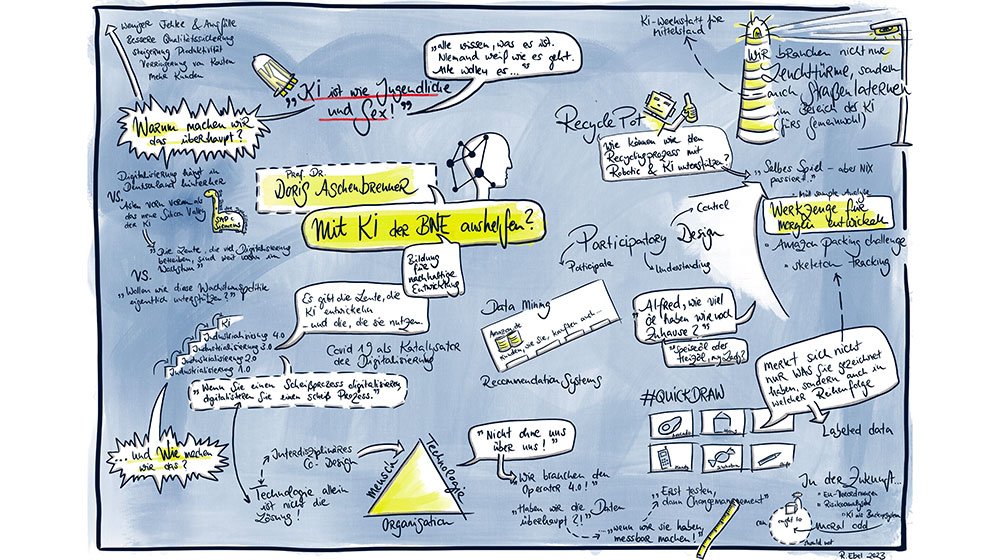 Weniger Fehler & Ausfälle
Bessere Qualitätssicherung
Steigerung Produktivität
Verringerung von Kosten
Mehr Kunden
Warum machen wir
das überhaupt?
„KI ist wie Jugendliche
und Sex!"
„Alle wissen, was es ist.
Niemand weiß wie es geht.
Alle wollen es..."
KI-Werkstatt für
Mittelstand
Wir brauchen nicht nur
Leuchttürme, sondern
auch Straßenlaternen
im Bereich der KI
(fürs Gemeinwohl)
RecyclePot
Wie können wir den
Recyclingprozess mit
Robotic & KI unterstützen?
„Selbes Spiel – aber NIX
passiert."
Werkzeuge für
morgen entwickeln
Amazon packing challenge
skeleton tracking
Digitalisierung hängt in
Deutschland hinterher
VS.
SAP &
Siemens
Asien vorn
das neue Silicon Valley
der KI
„Die Leute, die viel Digitalisierung
betreiben, sind weit vorn im
Wachstum"
VS.
„Wollen wir diese Wachstumspolitik
eigentlich unterstützen?"
Prof. Dr.
Doris Aschenbrenner
Mit KI der BNE aushelfen?
Bildung
für
nachhaltige
Entwicklung
Participatory Design
Control
Participate
Understanding
Es gibt die Leute, die
KI entwickeln
– und die, die sie nutzen.
KI
Industrialisierung 4.0
Industrialisierung 3.0
Industrialisierung 2.0
Industrialisierung 1.0
Covid 19 als Katalysator
der Digitalisierung
Data Mining
Amazon.de
Kunden, die sie, kauften auch...
Recommendation Systems
„Alfred, wie viel
Öl haben wir noch
Zuhause?"
„Speiseöl oder
Heizöl, my Lady?"
„Wenn Sie einen Scheißprozess digitalisieren,
digitalisieren Sie einen scheiß Prozess."
#QUICKDRAW
Merkt sich nicht
nur WAS Sie gezeichnet
haben, sondern auch in
welcher Reihenfolge
Labeled data
... und Wie machen
wir das?
Interdisziplinäres
Co-Design
Technologie allein
ist nicht die
Lösung!
Mensch
Technologie
Organisation
„Nicht ohne uns
über uns!"
Wir brauchen den
Operator 4.0!
„Haben wir die Daten
überhaupt?!"
...wenn wir sie haben,
messbar machen!"
„Erst testen,
dann Changemanagement"
In der Zukunft...
EU-Verordnungen
Risikoanalysen
can
ought to
should not
moral odd
R. Ebel 2023